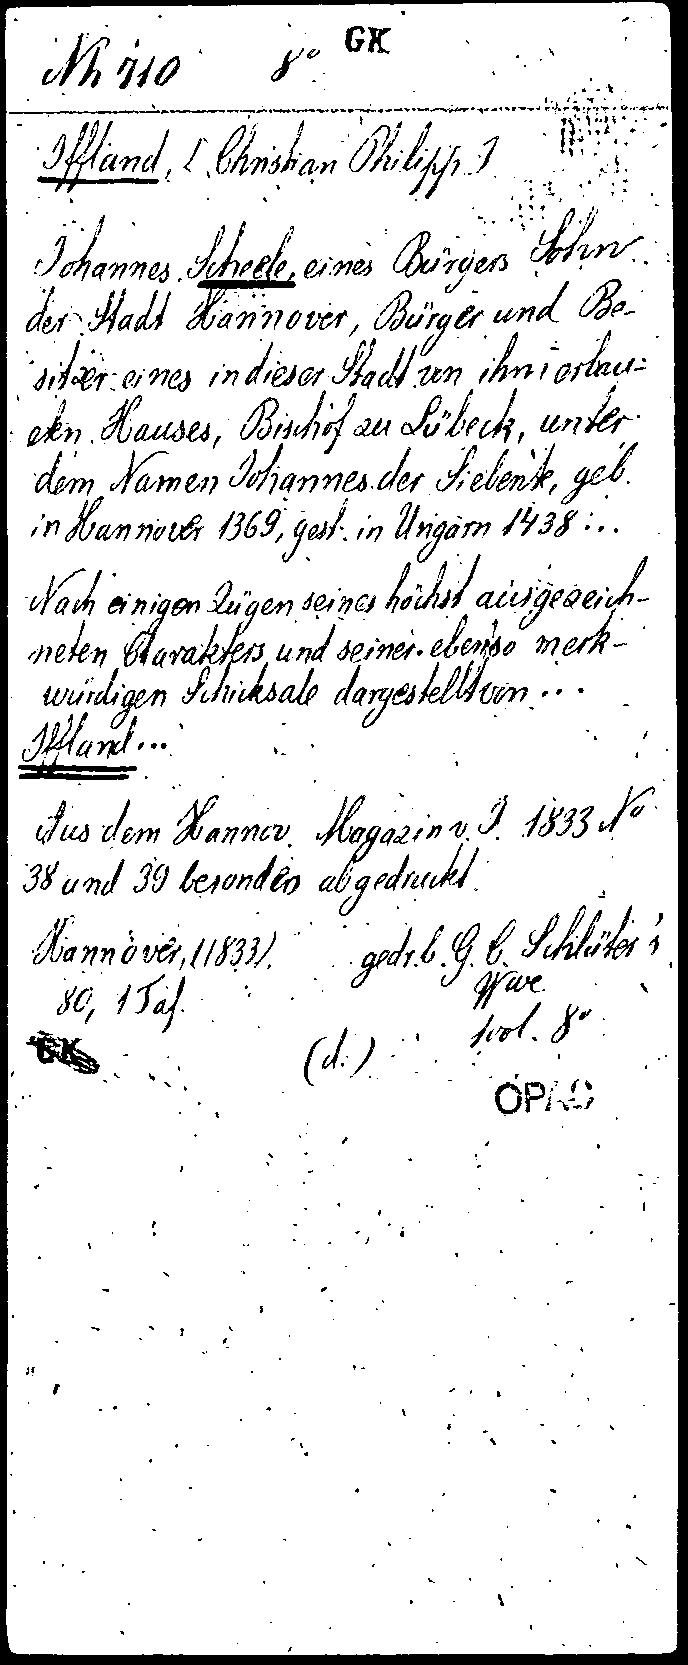 Nh 710 8° GK
Iffland, [Christian Philipp]
Johannes Scheele, eines Bürgers Sohn
der Stadt Hannover, Bürger und Be-
sitzer eines in dieser Stadt von ihm erbau-
eten Hauses, Bischof zu Lübeck, unter
dem Namen Johannes der Siebente, geb.
in Hannover 1369, gest. in Ungarn 1438 ...
Nach einigen Zügen seines höchst ausgezeich-
neten Charakters und seiner ebenso merk-
würdigen Schicksale dargestellt von ...
Iffland ...
Aus dem Hannov. Magazin v. J. 1833 No
38 und 39 besonders abgedruckt.
Hannover, (1833). gedr. b. G. C. Schlüter's
Wwe
80, 1 Taf. 1 vol. 8°
GK (d.)